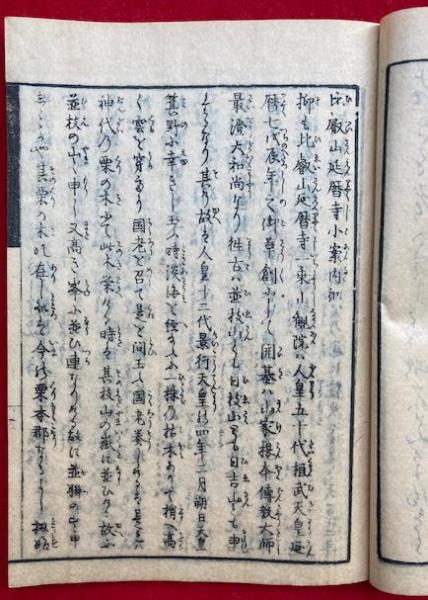 比叡山延暦寺小案内記
抑も比叡山延暦寺一乗止観院ハ人皇五十代桓武天皇延
暦七戊辰年の御草創にして開基ハ山家根本傳教大師
最澄大和尚なり往古ハ並枝山とも日枝山とも日吉山とも申
となり其故ハ人皇十二代景行天皇の四年二月朔日天皇
箕野に幸きし玉ふ時淡海を経玉ふに一株の枯木ありて梢ハ高
く空を穿り国老を召て是を問玉へ国老奏しける是ハ
神代乃栗の木にて此木栄し時ハ其枝山の嶽に並ひたる故に
並枝の山と申し又高き峯に並ひ連なりぬる故に並聯の山と申
其栗の木の在し処を今の栗本郡なり